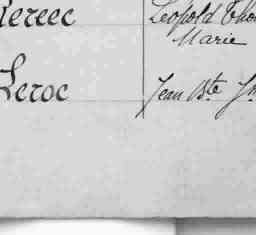 Lereec Léopold Tho
Marie
Leroc Jean Bte J